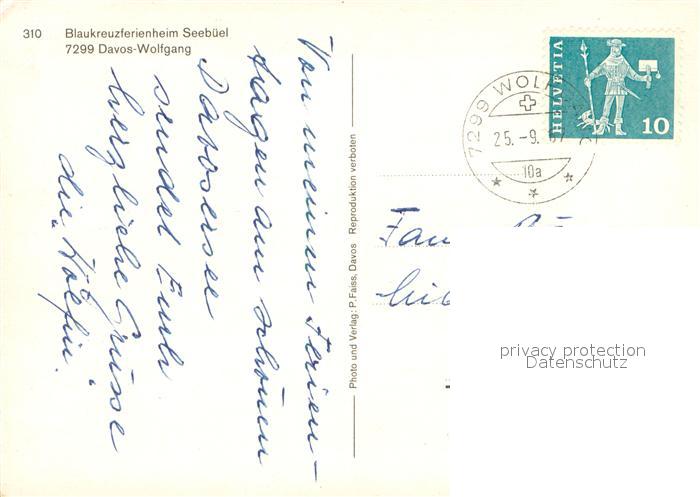 310 Blaukreuzferienheim Seebüel
7299 Davos-Wolfgang
Von meinen Ferien-
tagen am schönen
Davosersee
sendet Euch
herzliche Grüsse
die
Photo und Verlag: P. Faiss, Davos Reproduktion verboten
HELVETIA
10
7299 WOL
25.-9.
10a
Fam
privacy protection
Datenschutz